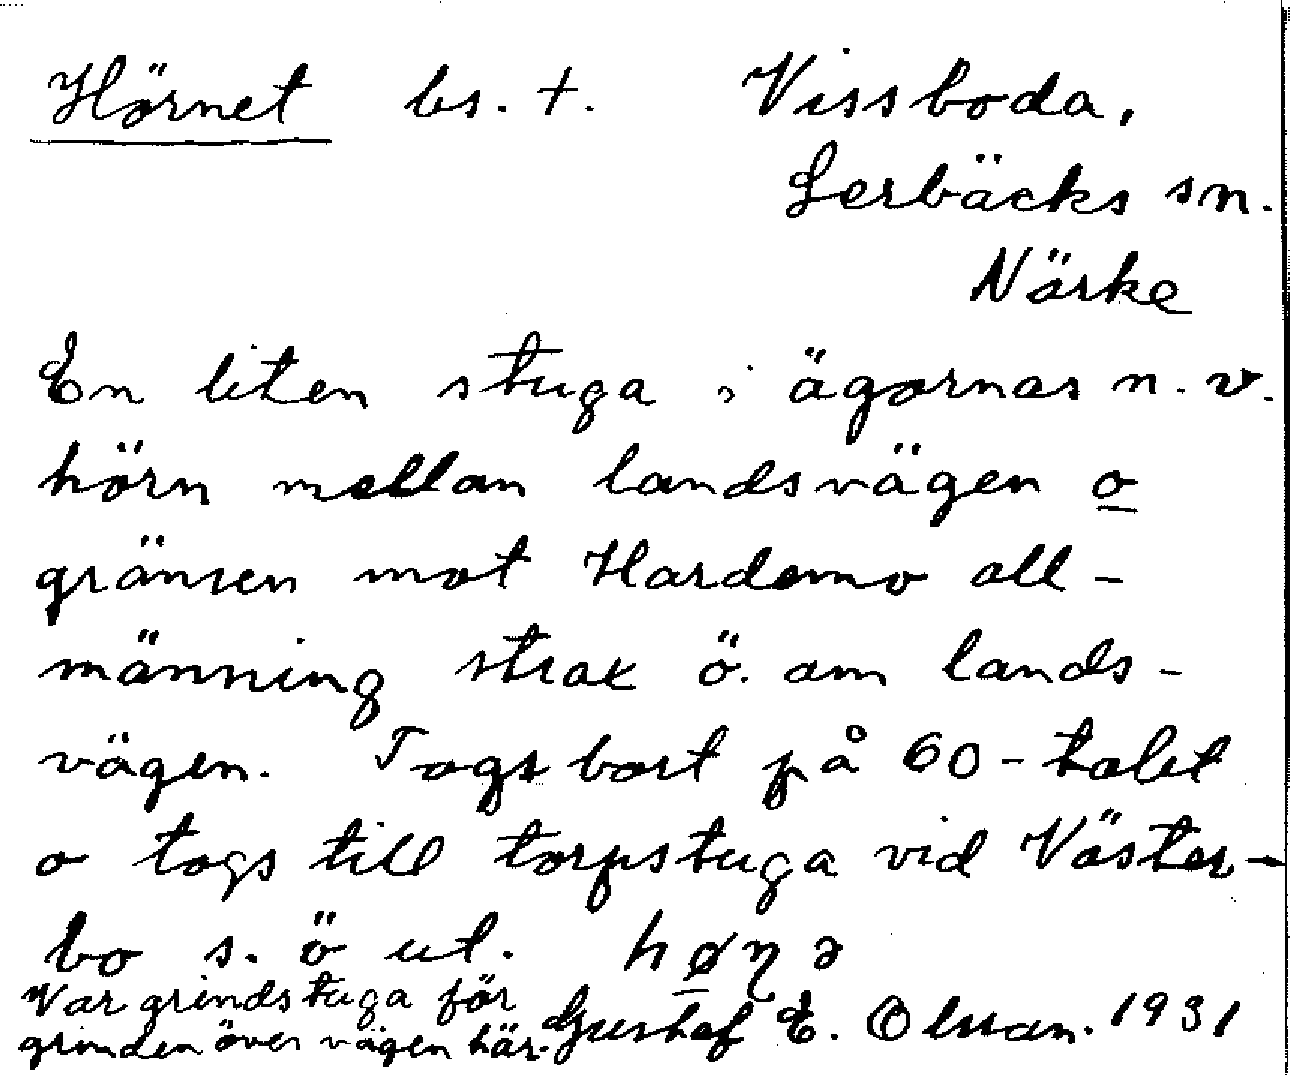 Hörnet bs. t. Vissboda,
Lerbäcks sn.
Närke
En liten stuga i ägornas n. v.
hörn mellan landsvägen o
gränsen mot Hardemo all-
männing strax ö. om lands-
vägen. Togs bort på 60-talet
o togs till torpstuga vid Väster-
bo s. ö ut.
Var grindstuga för
grinden över vägen här.
Gustaf E. Olsson. 1931